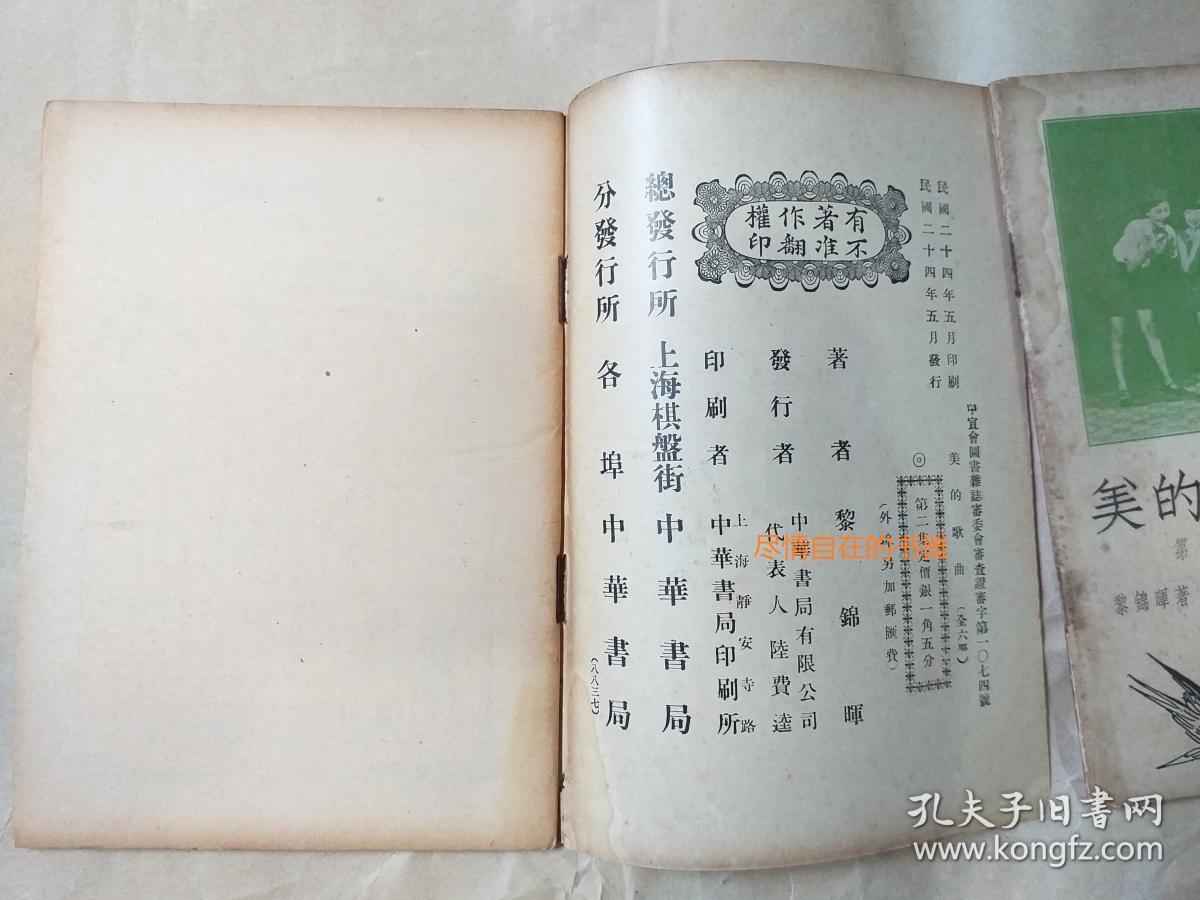 民國二十四年五月印刷
民國二十四年五月發行
中宣會圖書雜誌審委會審查證審字第一〇七四號
美的歌曲（全六冊）
◎
第二集定價銀一角五分
（外埠另加郵匯費）
有著作權
不准翻印
著者 黎錦暉
發行者 中華書局有限公司
代表人 陸費逵
印刷者 上海靜安寺路
中華書局印刷所
總發行所 上海棋盤街 中華書局
分發行所 各埠中華書局
（八八三七）
美的
第
黎錦暉著
尽情自在的书摊
孔夫子旧书网
www.kongfz.com